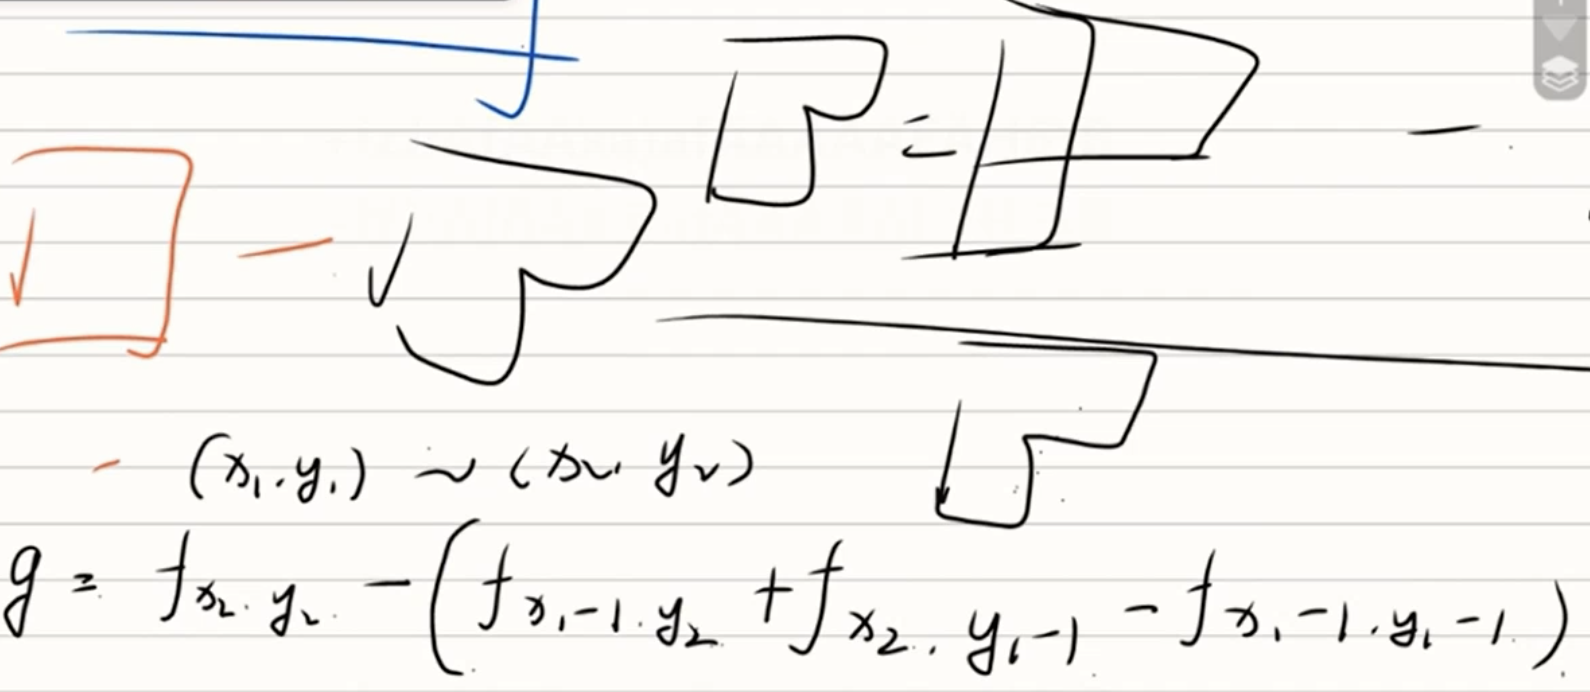 - (x₁.y₁) ~ (x₂.y₂)
g = f x₂.y₂ - (f x₁-1.y₂ + f x₂.y₁-1 - f x₁-1.y₁-1)